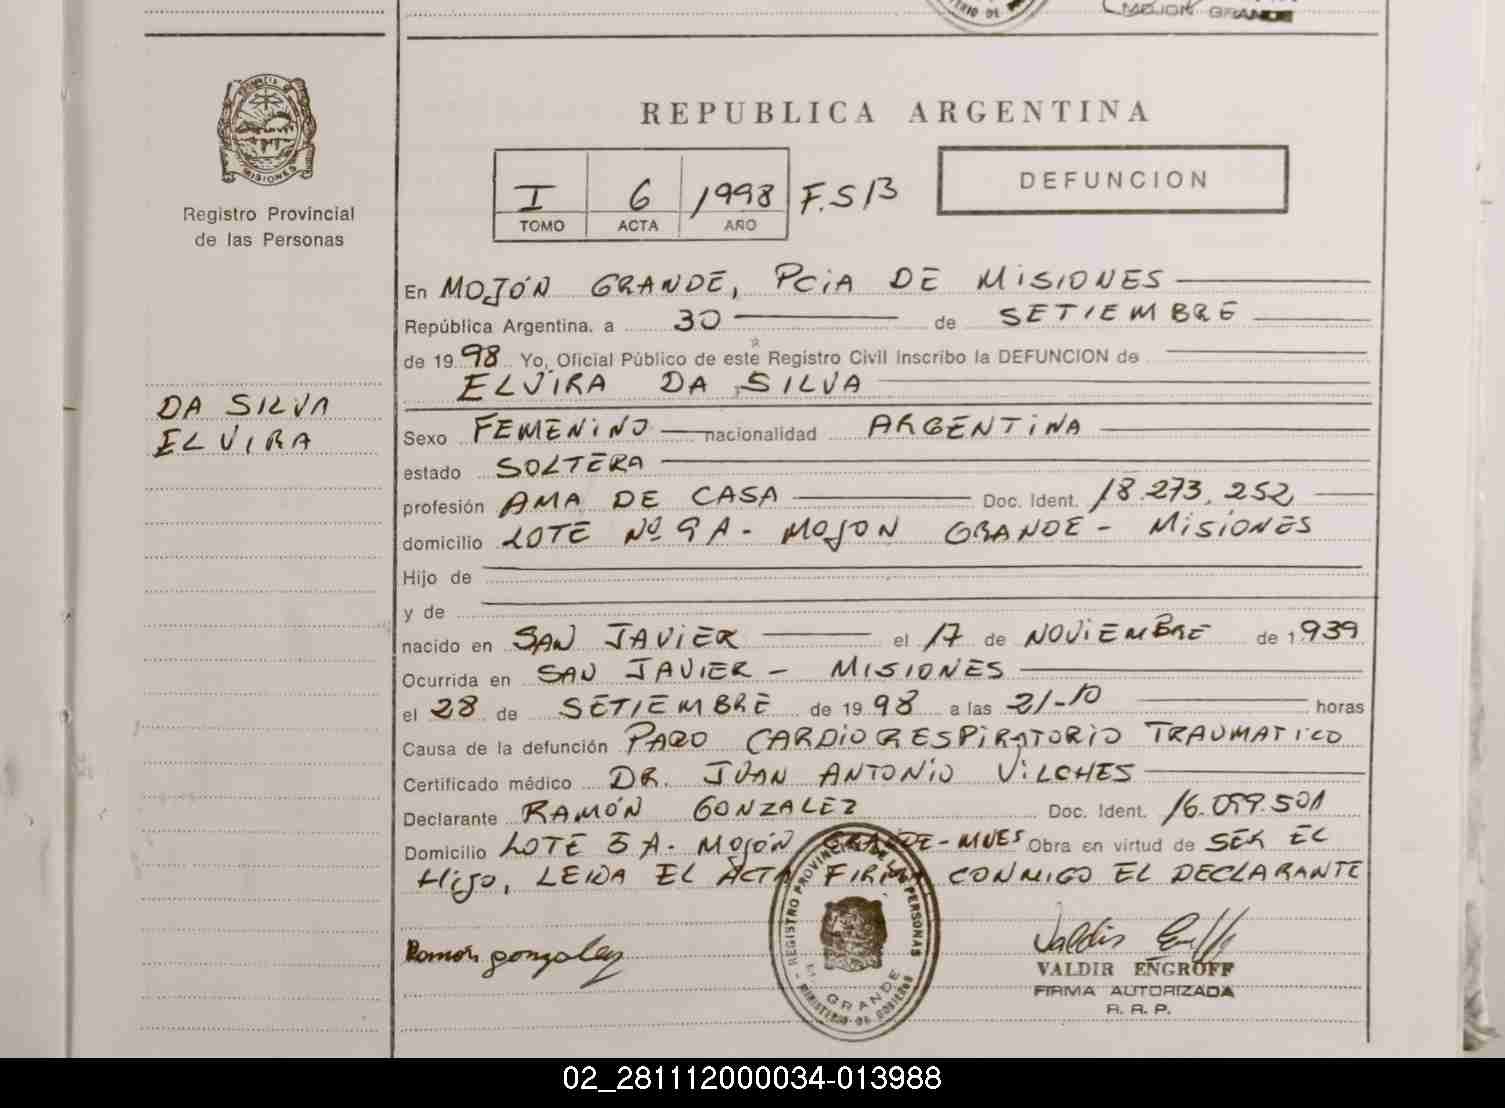 MOJON GRANDE
REPUBLICA ARGENTINA
PROVINCIA DE
MISIONES
Registro Provincial
de las Personas
I 6 1998 F.S 13
TOMO ACTA AÑO
DEFUNCION
En MOJÓN GRANDE, PCiA DE MiSIONES
República Argentina, a 30 de SETIEMBRE
de 19 98 Yo, Oficial Público de este Registro Civil Inscribo la DEFUNCION de
ELVIRA DA SILVA
DA SILVA
ELVIRA
Sexo FEMENiNO nacionalidad ARGENTiNA
estado SOLTERA
profesión AMA DE CASA Doc. Ident. 18.273.252
domicilio LOTE Nº 9 A - MOJON GRANDE - MiSIONES
Hijo de
y de
nacido en SAN JAViER el 17 de NOViEMBRE de 1.939
Ocurrida en SAN JAVIER - MISIONES
el 28 de SETIEMBRE de 19 98 a las 21-10 horas
Causa de la defunción PARO CARDiORESPiRATORiO TRAUMATICO
Certificado médico DR. JUAN ANTONiO ViLCHES
Declarante RAMÓN GONZALEZ Doc. Ident. 16.099.501
Domicilio LOTE 5 A - MOJÓN GRANDE - MNES Obra en virtud de SER EL
HIJO, LEIDA EL ACTA FIRMA CONMIGO EL DECLARANTE
Ramón gonzalez
REGISTRO PROVINCIAL DE LAS PERSONAS
M. GRANDE
MINISTERIO DE GOBIERNO
VALDIR ENGROFF
FIRMA AUTORIZADA
R. R. P.
02_281112000034-013988